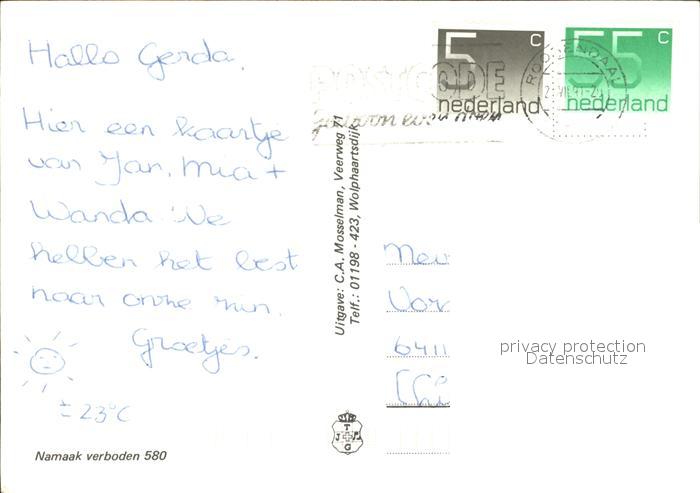 Hallo Gerda,
Hier een kaartje
van Jan, Mia +
Wanda. We
hebben het best
naar onze zin.
Groetjes.
± 23°C
Namaak verboden 580
Uitgave: C.A. Mosselman, Veerweg
Telf.: 01198 - 423, Wolphaartsdijk
T
J G
5 c
nederland
55 c
nederland
POSTCODE
ROOSENDAAL
Mev
Vor
6411
privacy protection
Datenschutz